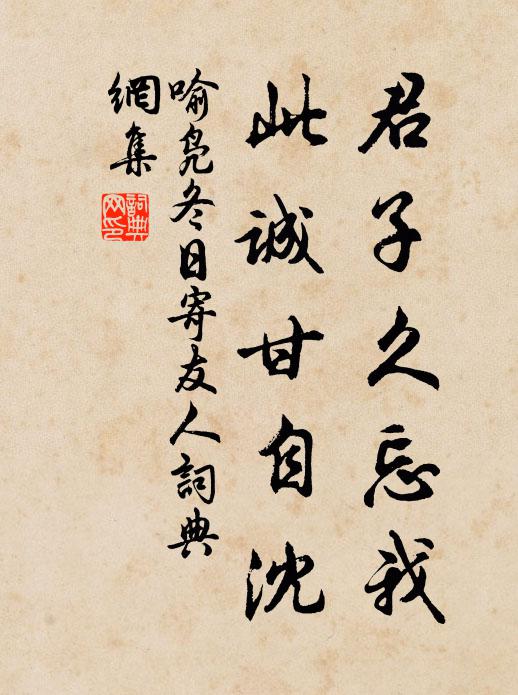 君子久忘我
此诚甘自沈
喻凫冬日寄友人詞典
網集
詞典
网印